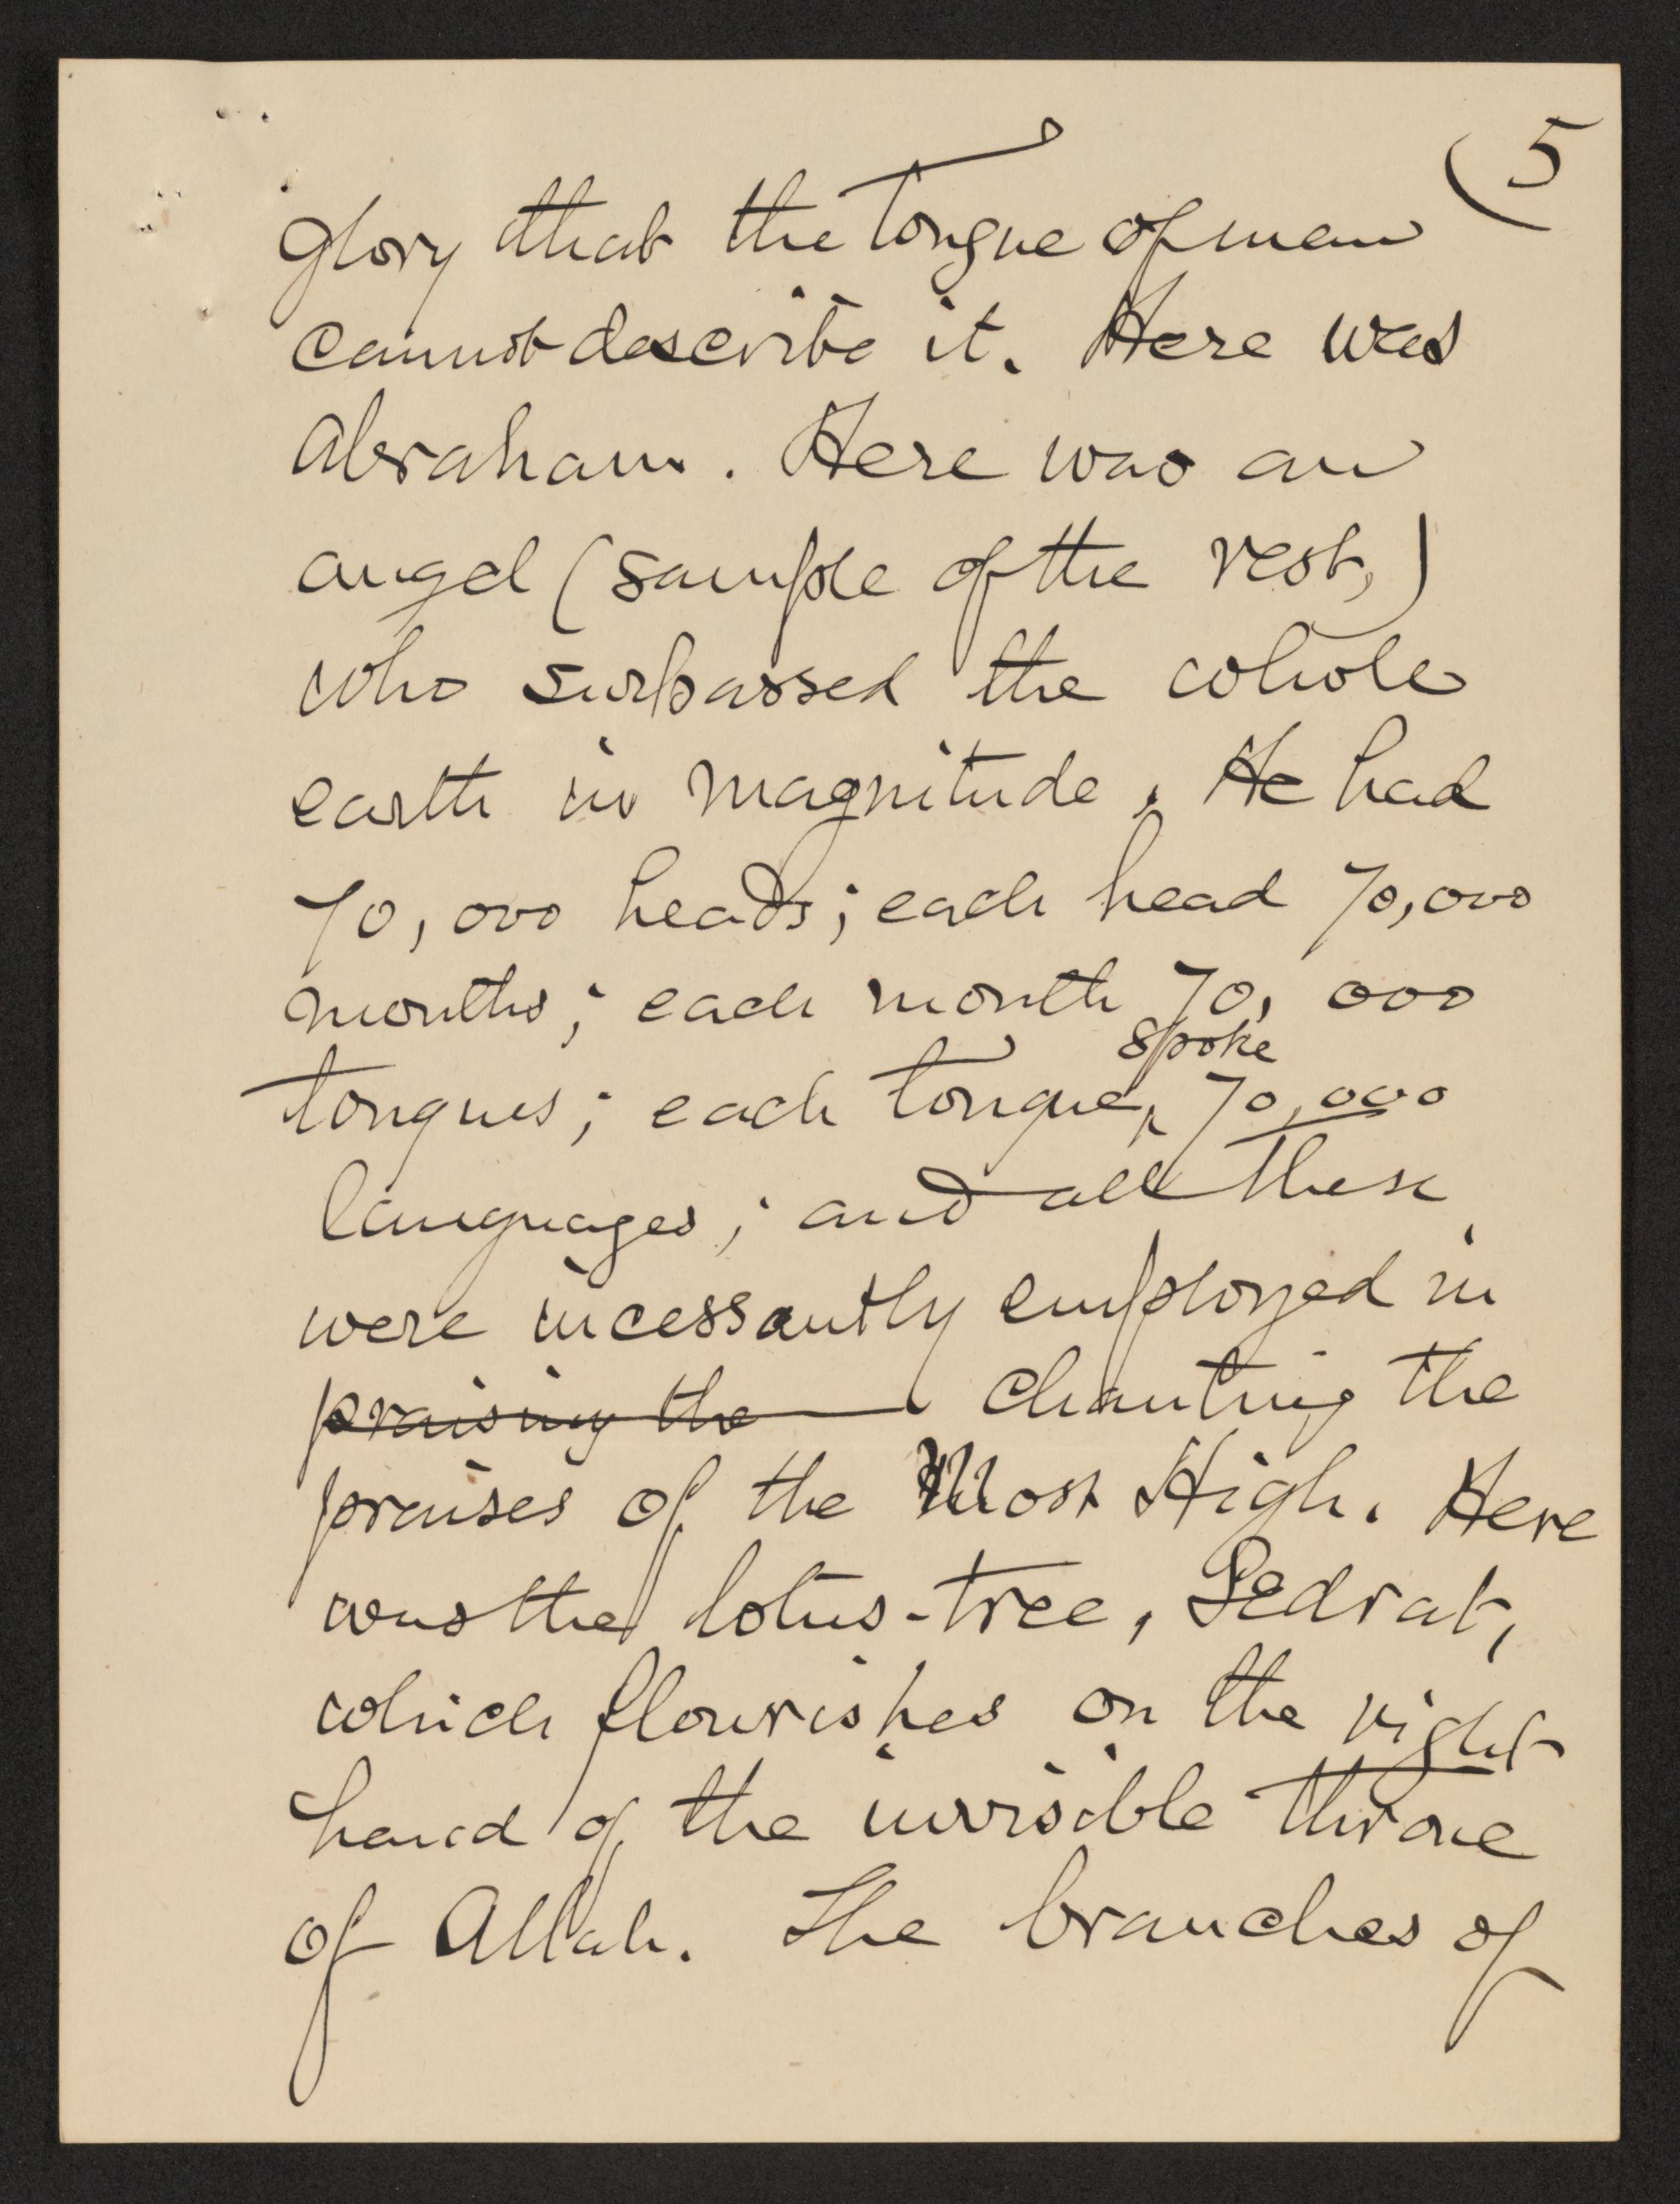 5
glory that the tongue of man
cannot describe it. Here was
Abraham. Here was an
angel (sample of the rest,)
who surpassed the whole
earth in magnitude. He had
70,000 heads; each head 70,000
mouths; each mouth 70,000
spoke
tongues; each tongue, 70,000
languages; and all these
were incessantly employed in
praising the chanting the
praises of the Most High. Here
was the lotus-tree, Sedrat,
which flourishes on the right
hand of the invisible throne
of Allah. The branches of